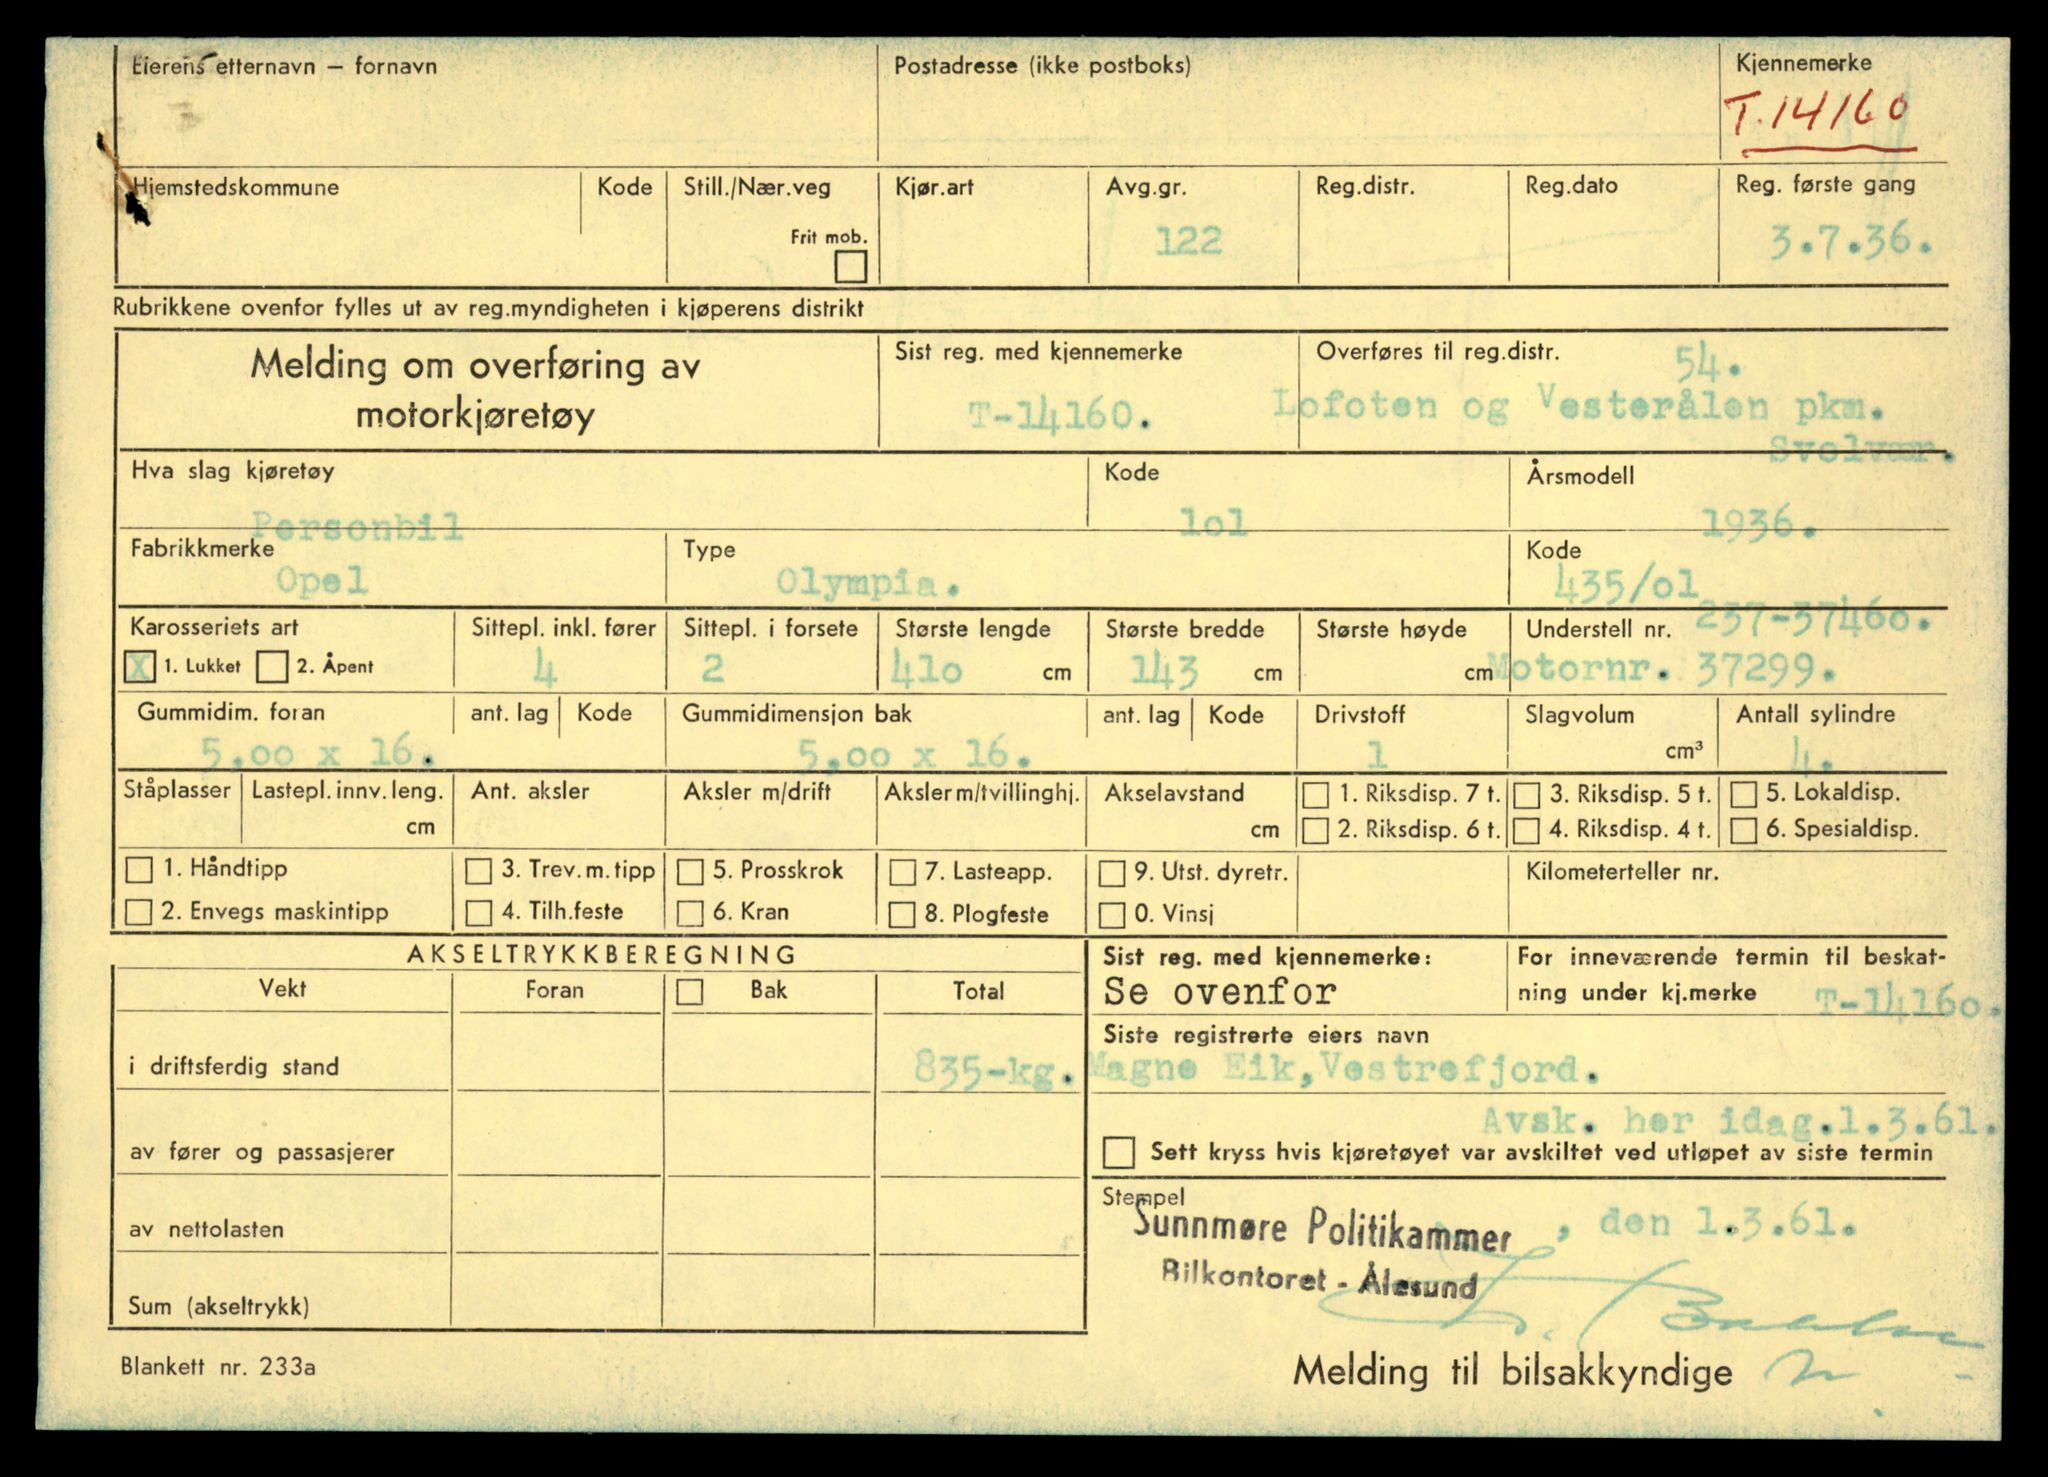 Eierens etternavn – fornavn
Postadresse (ikke postboks)
Kjennemerke
T.14160
Hjemstedskommune
Kode
Still./Nær.veg
Frit mob.
Kjør.art
Avg.gr.
122
Reg.distr.
Reg.dato
Reg. første gang
3.7.36.
Rubrikkene ovenfor fylles ut av reg.myndigheten i kjøperens distrikt
Melding om overføring av
motorkjøretøy
Sist reg. med kjennemerke
T-14160.
Overføres til reg.distr.
54.
Lofoten og Vesterålen pkm.
Svolvær.
Hva slag kjøretøy
Personbil
Kode
lol
Årsmodell
1936.
Fabrikkmerke
Opel
Type
Olympia.
Kode
435/ol
Karosseriets art
X 1. Lukket 2. Åpent
Sittepl. inkl. fører
4
Sittepl. i forsete
2
Største lengde
41o cm
Største bredde
143 cm
Største høyde
cm
Understell nr. 237-37460.
Motornr. 37299.
Gummidim. foran
5,oo x 16.
ant. lag
Kode
Gummidimensjon bak
5,oo x 16.
ant. lag
Kode
Drivstoff
1
Slagvolum
cm³
Antall sylindre
4.
Ståplasser
Lastepl. innv. leng.
cm
Ant. aksler
Aksler m/drift
Aksler m/tvillinghj.
Akselavstand
cm
1. Riksdisp. 7 t.
2. Riksdisp. 6 t.
3. Riksdisp. 5 t.
4. Riksdisp. 4 t.
5. Lokaldisp.
6. Spesialdisp.
1. Håndtipp
2. Envegs maskintipp
3. Trev. m. tipp
4. Tilh.feste
5. Prosskrok
6. Kran
7. Lasteapp.
8. Plogfeste
9. Utst. dyretr.
0. Vinsj
Kilometerteller nr.
AKSELTRYKKBEREGNING
Vekt
Foran
Bak
Total
i driftsferdig stand
835-kg.
av fører og passasjerer
av nettolasten
Sum (akseltrykk)
Sist reg. med kjennemerke:
Se ovenfor
For inneværende termin til beskat-
ning under kj.merke T-1416o.
Siste registrerte eiers navn
Magne Eik, Vestrefjord.
Avsk. her idag.1.3.61.
Sett kryss hvis kjøretøyet var avskiltet ved utløpet av siste termin
Stempel
Sunnmøre Politikammer, den 1.3.61.
Bilkontoret - Ålesund
Blankett nr. 233a
Melding til bilsakkyndige